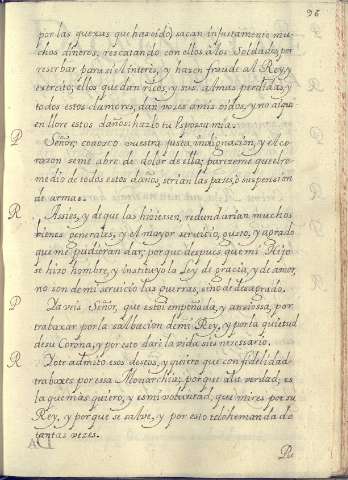 96
por las quexas que ha oido) sacan injustamente mu-
chos dineros, rescatando con ellos a los Soldados, por
reserbar para si el interes, y hazen fraude al Rey, y
exercito; ellos quedan ricos, y sus almas perdidas, y
todos estos clamores, dan voces a mis oidos, y no ai quien
en llore estos daños: hazlo tu Esposa mia.
P Señor, conozco vuestra justa indignazion, y el co-
razon se me abre de dolor de ella; pareçeme que el re
medio de todos estos daños, serian las pazes, o suspension
de armas.
R Assi es, y de que las hiziesen, redundarian muchos
bienes generales, y el mayor servicio, gusto, y agrado
que me pudieran dar; porque despues que mi Hijo
se hizo hombre, y instituyo la Ley de gracia, y de amor,
no son de mi servicio las guerras, sino de desagrado.
P Ya veis Señor, que estoi empeñada, y ansiossa, por
trabaxar por la salbacion de mi Rey, y por la quietud
de su Corona, y por esto daré la vida si es necesario.
R Yo te admito esos deseos, y quiero que con fidelidad
trabaxes por essa Monarchia; porque a la verdad, es
la que mas quiero, y es mi voluntad, que mires por su
Rey, y porque se salve, y por esto te lo he mandado
tantas vezes.